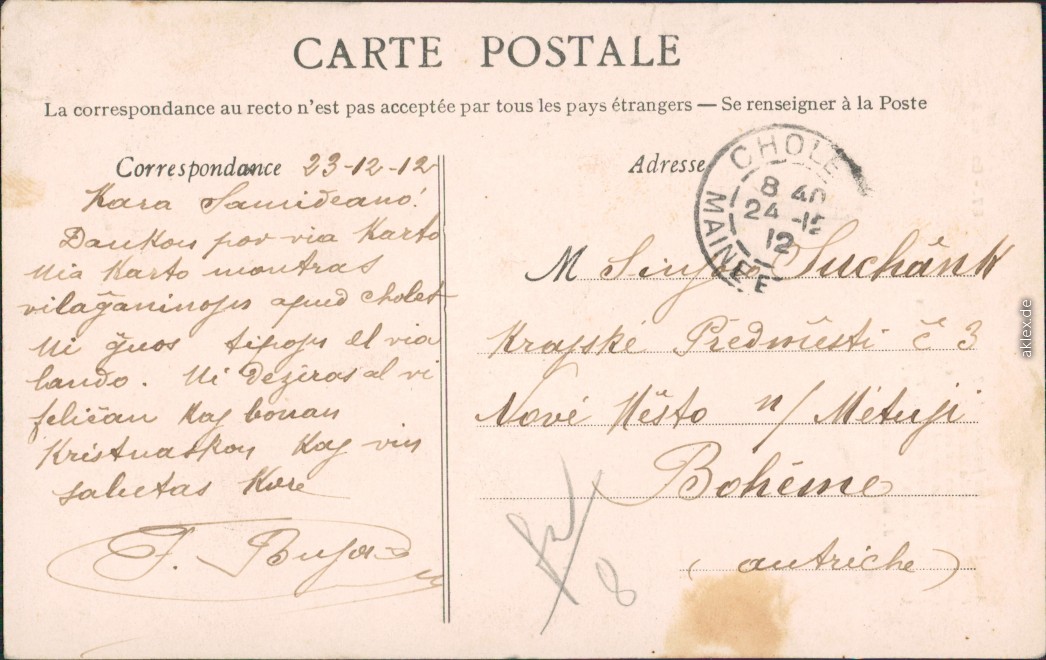 CARTE POSTALE
La correspondance au recto n'est pas acceptée par tous les pays étrangers — Se renseigner à la Poste
Correspondance 23-12-12
Kara Samideano!
Dankon por via Karto
Mia Karto montras
vilaĝaninojn apud cholet
Ni ĝuos tipojn el via
lando. Ni deziras al vi
feliĉan Kaj bonan
Kristnaskon Kaj vin
salutas Kore
F.
Adresse
CHOLE
8 40
24 -12
12
MAINE E
M Suchánk
Krajské Předměstí č 3
Nové Město n/ Métuji
Bohême
(autriche)
8
aklex.de